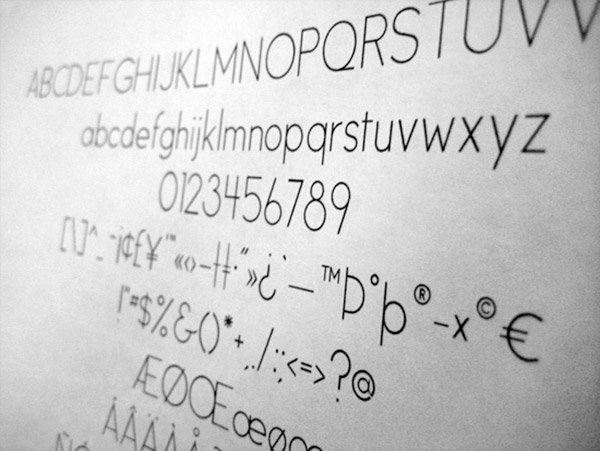 ABCDEFGHIJKLMNOPQRSTUV
abcdefghijklmnopqrstuvwxyz
0123456789
[\]^_ ¯¡¢£¥"'«‹›–†‡·"»¿`—™Þ°þ®-×©€
!"=$%&()*+,./:;<=>?@
ÆØŒæøœ
ÁÂÄÀÅ
Ñ